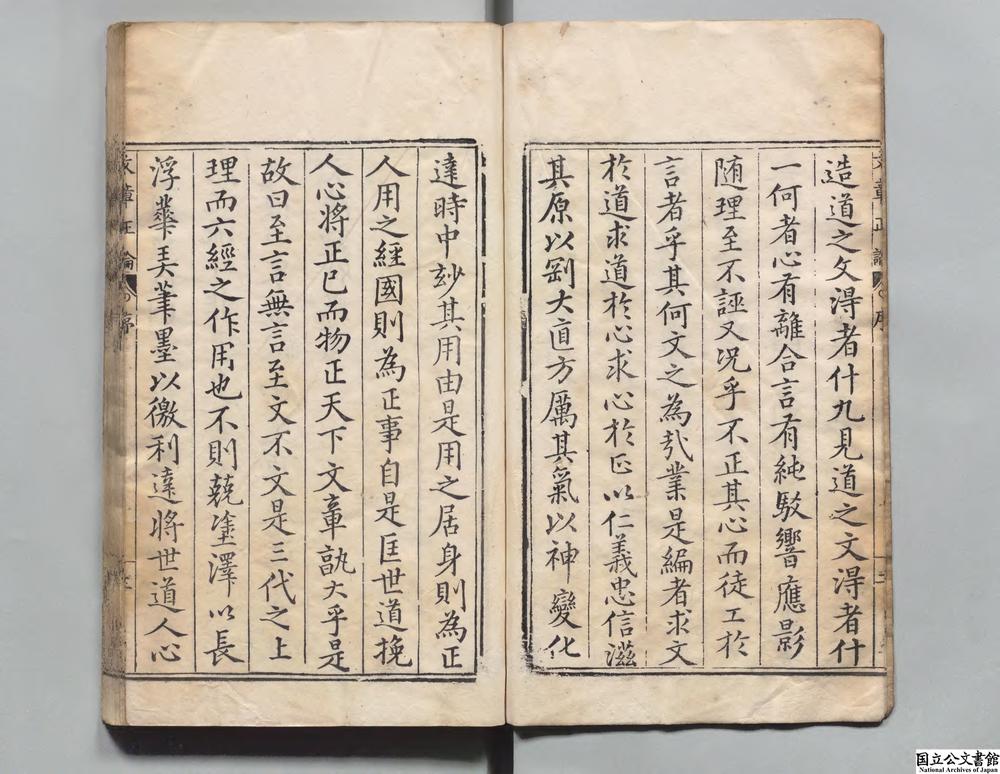 造道之文得者什九見道之文得者什
一何者心有離合言有純駁響應影
随理至不誣又况乎不正其心而徒工於
言者乎其何文之為㢤業是編者求文
於道求道於心求心於正以仁義忠信滋
其原以剛大直方厲其氣以神變化
達時中玅其用由是用之居身則為正
人用之經國則為正事自是匡世道挽
人心將正巳而物正天下文章孰大乎是
故曰至言無言至文不文是三代之上
理而六經之作用也不則兢塗澤以長
浮華美筆墨以徼利達將世道人心
文章正論 序
国立公文書館
National Archives of Japan